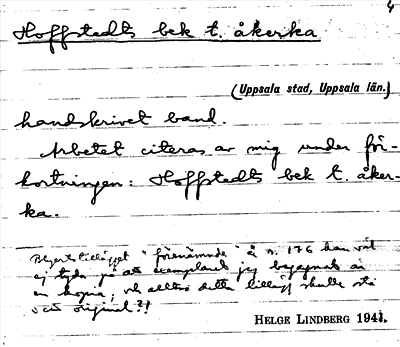 4
Hoffstedts bek t. åkerka
(Uppsala stad, Uppsala län.)
handskrivet band.
Arbetet citeras av mig under för-
kortningen: Hoffstedts bek t. åker-
ka.
"förenämnde" å s. 176 kan väl
ej tyda på att exemplaret jag begagnat är
en kopia, och alltså detta tillägg skulle stå
i original?!
HELGE LINDBERG 1941.